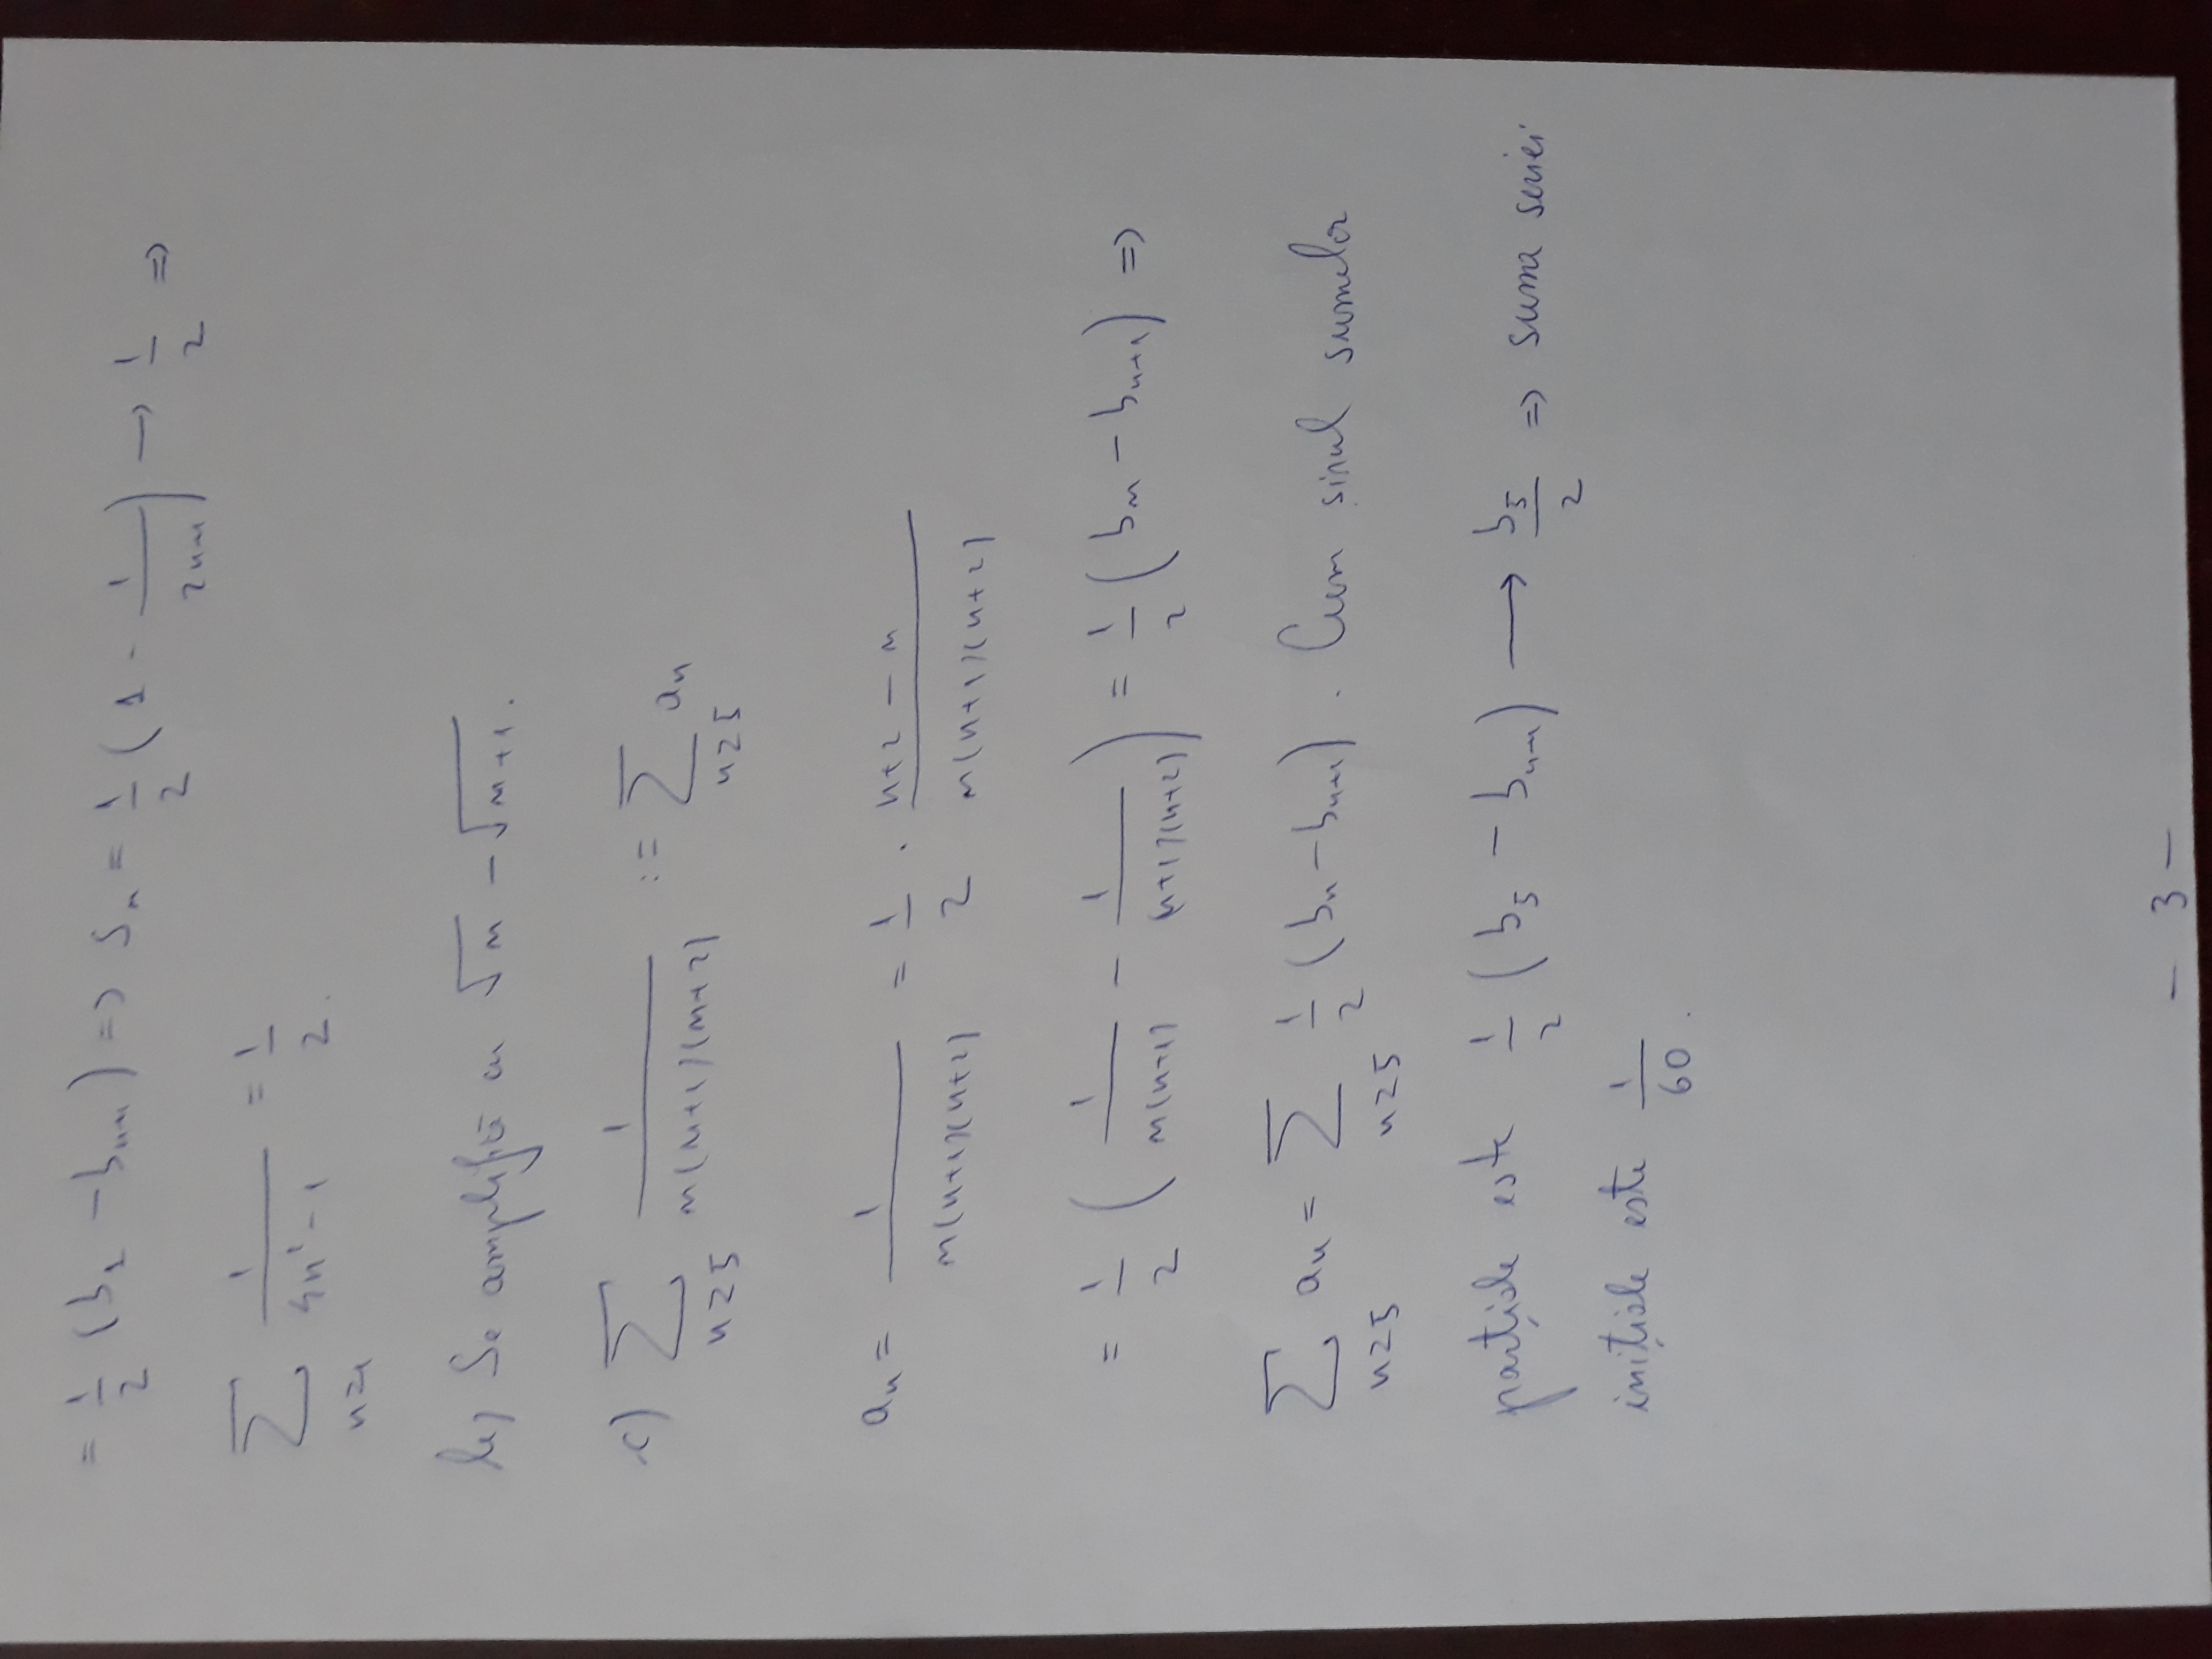 = 1/2 (b₁ - bₙ₊₁) => Sₙ = 1/2 (1 - 1/(2n+1)) → 1/2 =>
∑_{n≥1} 1/(4n² - 1) = 1/2.
b) Se amplifică cu √n - √(n+1).
c) ∑_{n≥5} 1/(n(n+1)(n+2)) := ∑_{n≥5} aₙ
aₙ = 1/(n(n+1)(n+2)) = 1/2 · (n+2 - n)/(n(n+1)(n+2))
= 1/2 (1/(n(n+1)) - 1/((n+1)(n+2))) = 1/2 (bₙ - bₙ₊₁) =>
∑_{n≥5} aₙ = ∑_{n≥5} 1/2 (bₙ - bₙ₊₁). Cum șirul sumelor
parțiale este 1/2 (b₅ - bₙ₊₁) → b₅/2 => suma seriei
inițiale este 1/60.
- 3 -